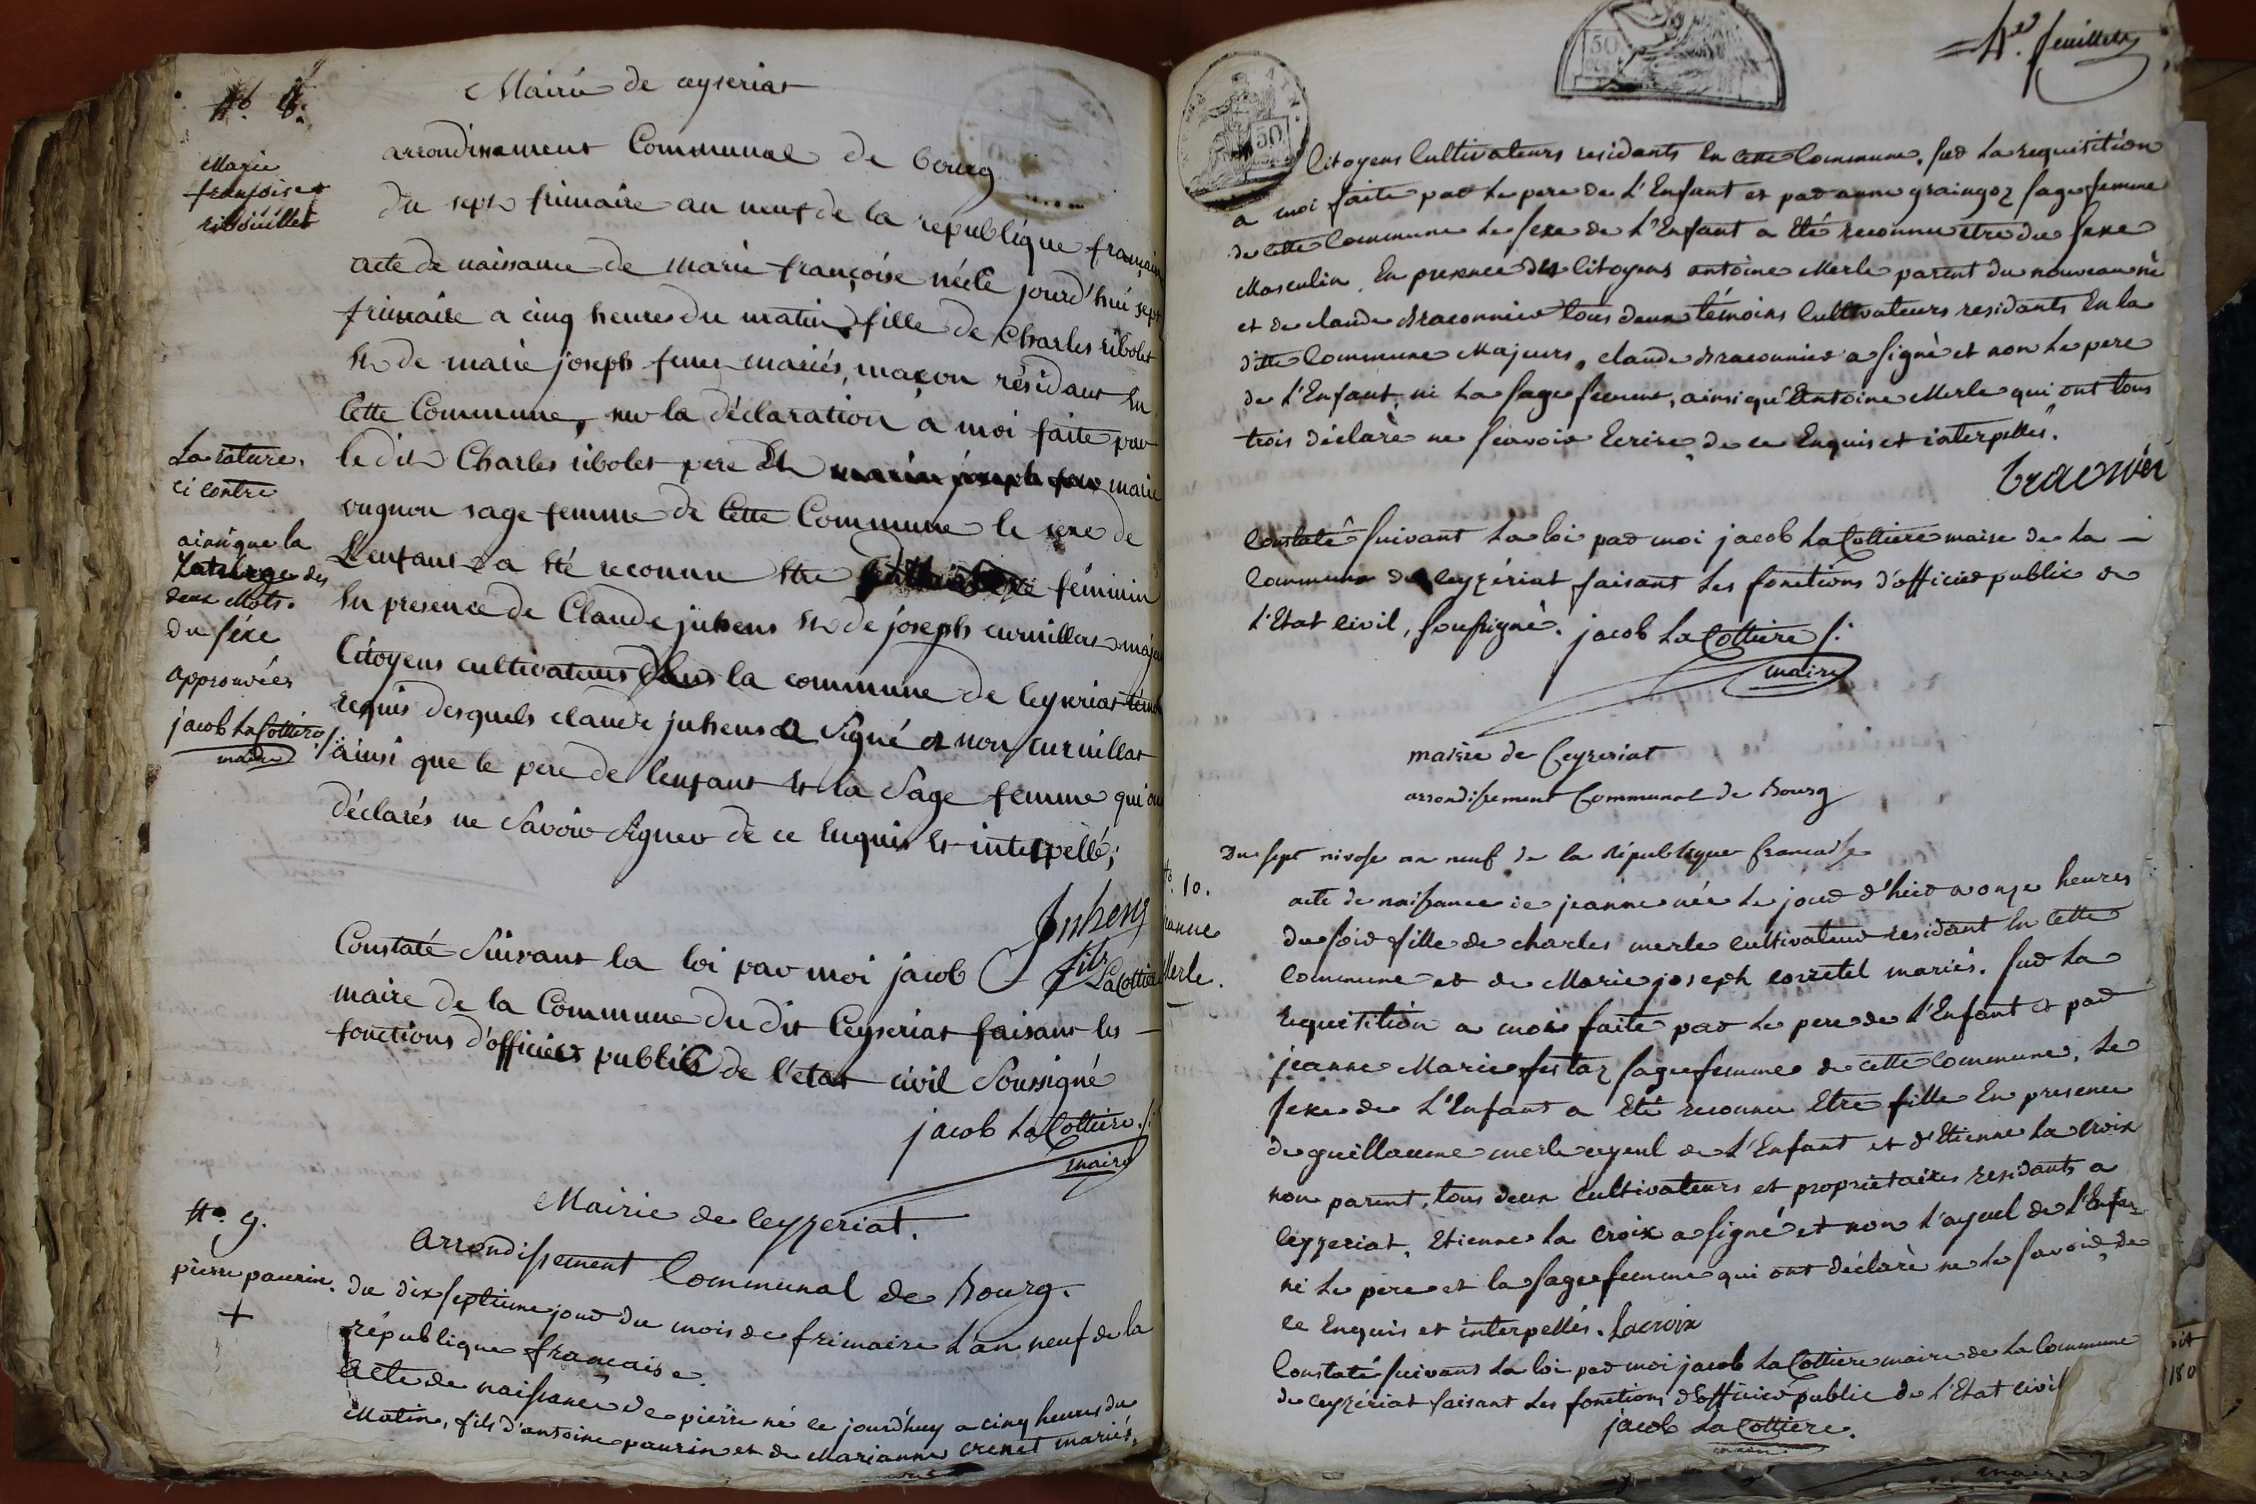 N.º 8.
Marie
françoise
ribouillet
Mairie de ceyseriat
arrondissement Communal de bourg
du sept frimaire an neuf de la republique française
acte de naissance de marie françoise néé le jourd'hui sept
frimaire a cinq heure du matin, fille de Charles ribolet
et de marie joseph mariés, maçon résidant en
Cette Commune, sur la déclaration a moi faite par
le dit Charles ribolet pere Et marie
sage femme de Cette Commune le sexe de
L'enfant a été reconnu etre féminin
en presence de Claude juhens et de joseph curnillat majeurs
Citoyens cultivateurs dans la commune de Ceyseriat témoins
requis desquels claude juhens a Signé et non curnillat
ainsi que le pere de l'enfant et la Sage femme qui ont
déclarés ne Savoir Signer de ce Enquis et interpellé;
La rature
ci contre
ainsi que la
des
deux Mots.
du séxe
approuvées
jacob LaCottiere
maire
Juhens
fils
Constaté Suivant la loi par moi jacob LaCottiere
maire de la Commune du dit Ceyseriat faisant les
fonctions d'officier public de l'etat civil Soussigné
jacob LaCottiere
maire
N.º 9.
pierre paurin.
+
Mairie de Ceyzeriat.
Arrondissement Communal de Bourg.
du dix septieme jour du mois de frimaire L'an neuf de la
république française.
Acte de naissance de pierre né ce jourd'huy a cinq heures du
Matin, fils d'antoine paurin et de Marianne Crenet mariés,
4.e feuillet
50
Citoyens Cultivateurs residants En cette Commune. Sur La requisition
a moi faite par Le pere de L'Enfant et par anne graingoz sage femme
de cette Commune Le sexe de L'Enfant a Eté reconnu etre du sexe
Masculin. En presence des Citoyens antoine Merle parent du nouveau né
et de claude draconnier tous deux témoins Cultivateurs residants En la
ditte Commune Majeurs, claude draconnier a signé et non Le pere
de L'Enfant, ni La sage femme, ainsi qu'Antoine Merle qui ont tous
trois déclaré ne scavoir Ecrire, de ce Enquis et interpellés.
Constaté suivant La loi par moi jacob LaCottiere maire de La
Commune de Ceyzériat faisant Les fonctions d'officier public de
L'Etat Civil, soussigné. jacob LaCottiere
maire
mairie de Ceyzeriat
arrondissement Communal de Bourg
N.º 10.
jeanne
Merle.
Du sept nivose an neuf de la République francaise
acte de naissance de jeanne née Le jour d'hier a onze heures
du soir fille de charles merle cultivateur residant En Cette
Commune et de Marie joseph corretel mariés. sur La
requisition a moi faite par Le pere de L'Enfant et par
jeanne Marie festaz sage femme de cette Commune, Le
sexe de L'Enfant a Eté reconnu Etre fille En presence
de guillaume merle ayeul de L'Enfant et d'Etienne La Croix
non parent, tous deux Cultivateurs et propriétaires residants a
Ceyzeriat, Etienne La Croix a signé et non L'ayeul de L'Enfant
ni Le pere et la sage femme qui ont déclaré ne Le savoir, de
ce Enquis et interpellés. Lacroix
Constaté suivant La loi par moi jacob LaCottiere maire de La Commune
de Ceyzériat faisant Les fonctions d'officier public de L'Etat Civil
jacob LaCottiere.
maire